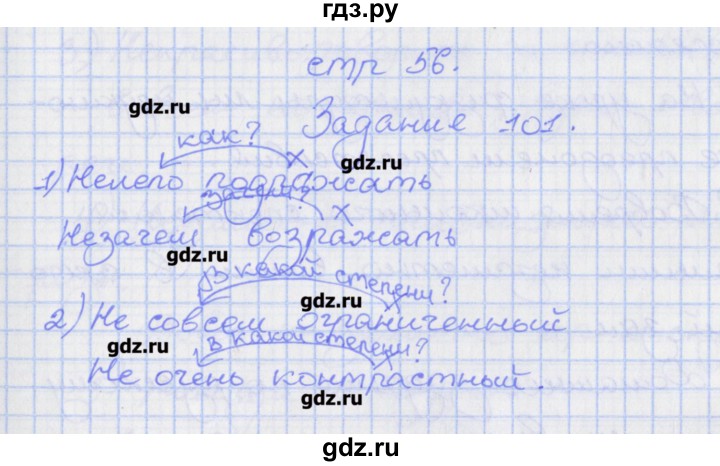 гдз.ру
стр 56.
gdz.ru
Задание 101.
как?
gdz.ru
1) Нелепо подражать
зачем?
Незачем возражать
gdz.ru
в какой степени?
gdz.ru
2) Не совсем ограниченный
gdz.ru
в какой степени?
Не очень контрастный.
gdz.ru
gdz.ru